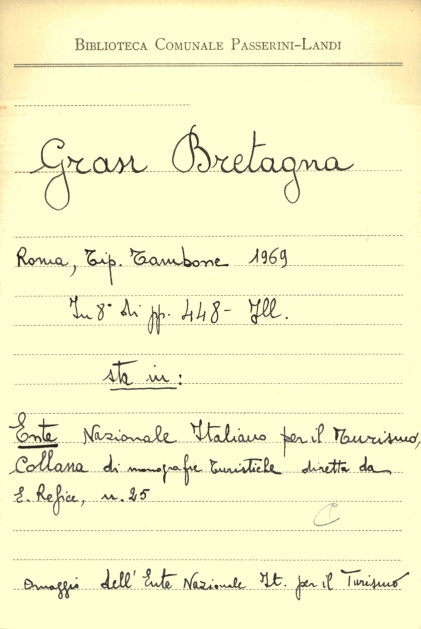 BIBLIOTECA COMUNALE PASSERINI-LANDI
Gran Bretagna
Roma, Tip. Tambone 1969
In 8° di pp. 448 - Ill.
sta in:
Ente Nazionale Italiano per il Turismo,
Collana di monografie turistiche diretta da
E. Refice, n. 25
C
Omaggio dell'Ente Nazionale It. per il Turismo